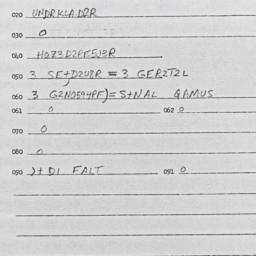 020 UNDRKLA.D2R
030 0
040 HO73D2PF5J3R
050 3 SE,+D2U2R = 3 GER2T2L
060 3 G2NO594PF)= S+NAL GAMUS
061 0 062 0
070 0
080 0
090 )+ DI FALT 091 0